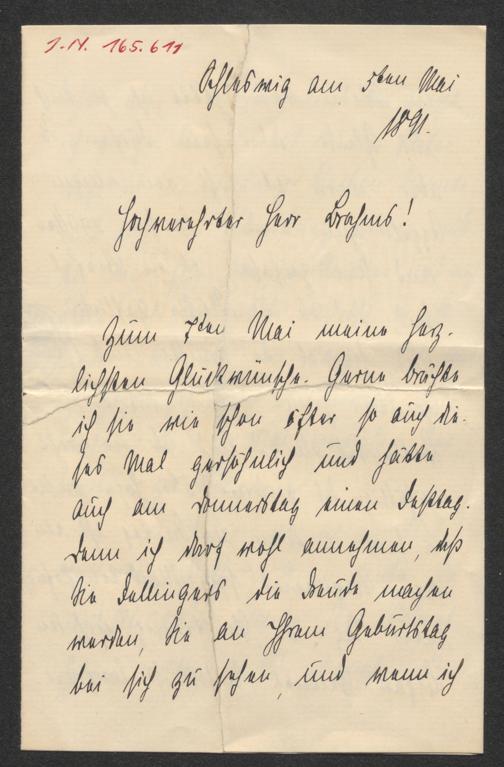 I.N. 165.611
Schleswig am 5ten Mai
1891.
Hochverehrter Herr Brahms!
Zum 7ten Mai meine herz-
lichsten Glückwünsche. Gerne brächte
ich sie wie schon öfter so auch die-
ses Mal persönlich und hätte
auch am Donnerstag einen Festtag.
Denn ich darf wohl annehmen, daß
Sie Fellingers die Freude machen
werden, Sie an Ihrem Geburtstag
bei sich zu sehen, und wenn ich